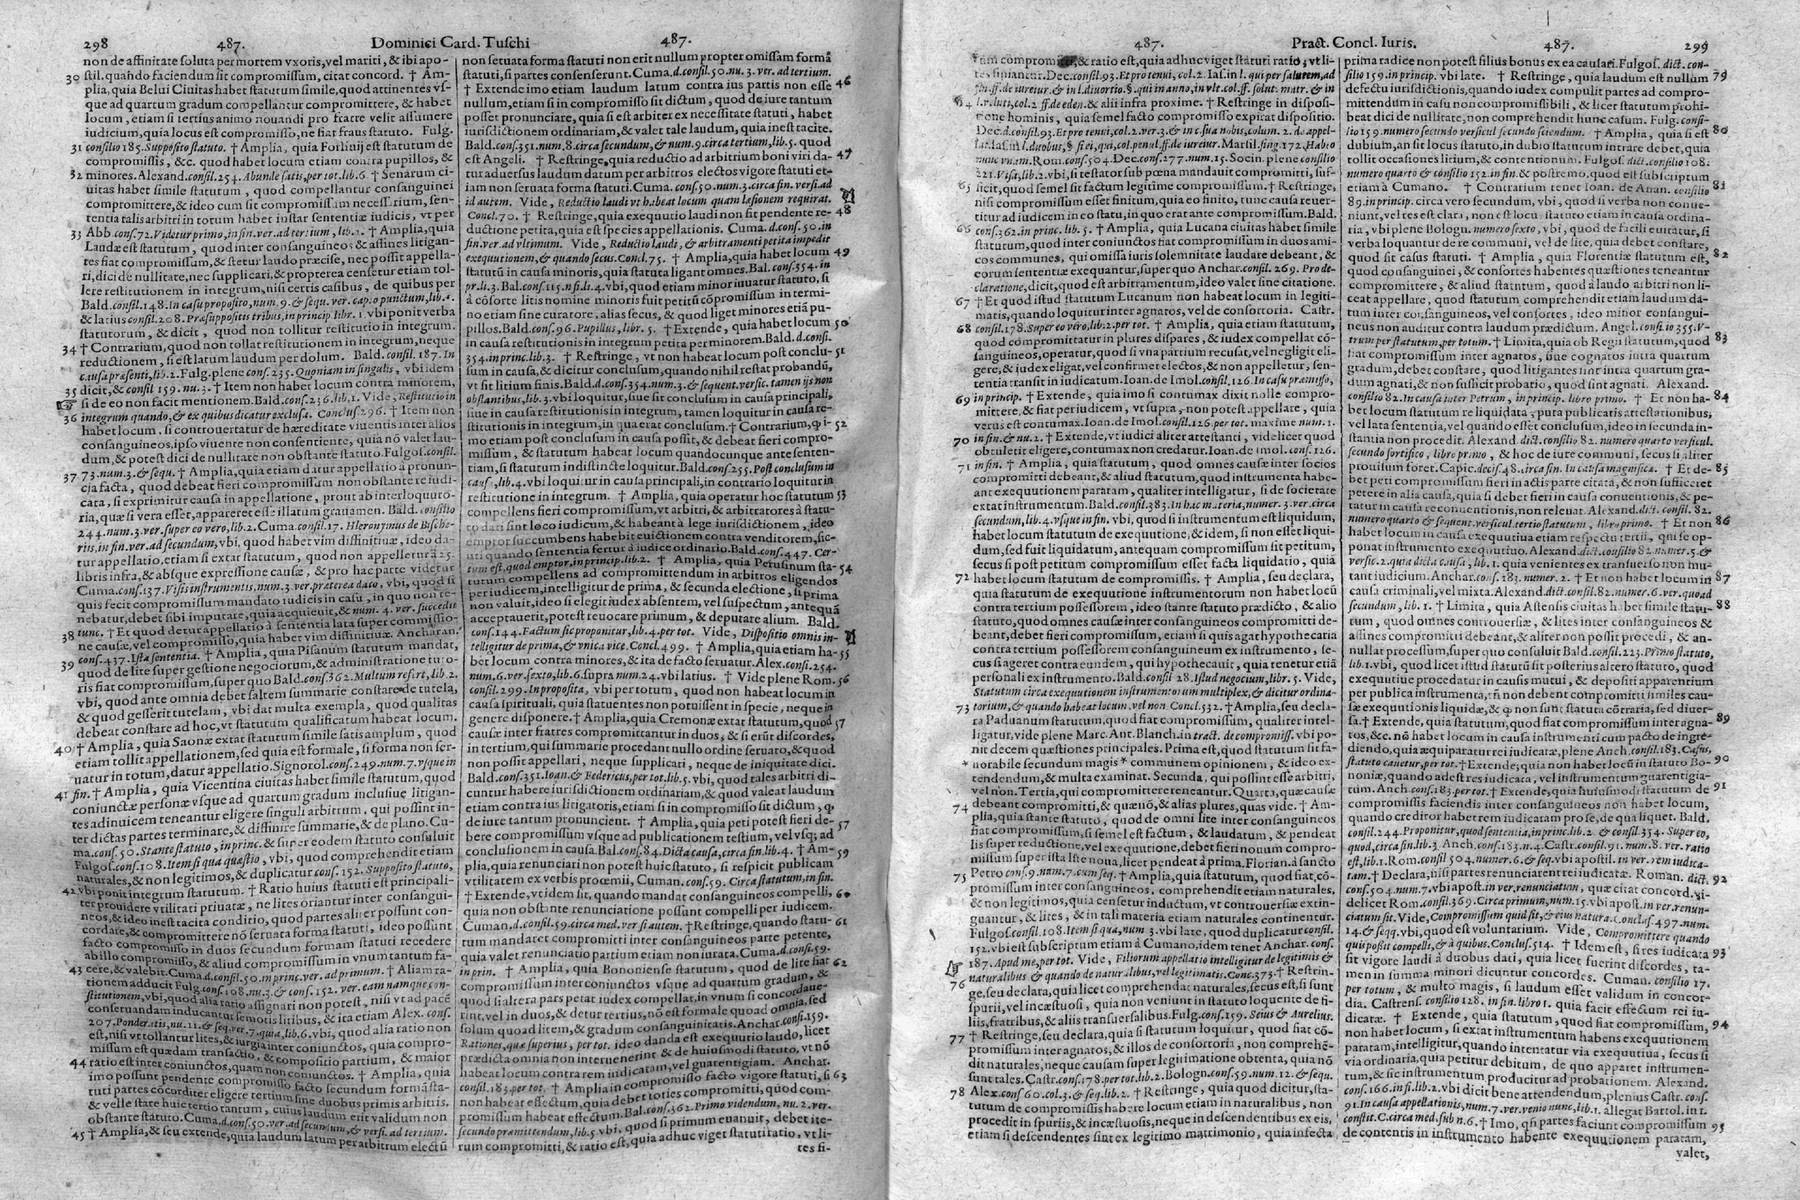 298 487. Dominici Card. Tuschi 487.
non de affinitate soluta per mortem vxoris, vel mariti, & ibi apo-
30 stil. quando faciendum sit compromissum, citat concord. † Am-
plia, quia Belui Ciuitas habet statutum simile, quod attinentes vs-
que ad quartum gradum compellantur compromittere, & habet
locum, etiam si tertius animo nouandi pro fratre velit assumere
iudicium, quia locus est compromisso, ne fiat fraus statuto. Fulg.
31 consilio 185. Supposito statuto. † Amplia, quia Forliuij est statutum de
compromissis, &c. quod habet locum etiam contra pupillos, &
32 minores. Alexand. consil. 254. Abunde satis, per tot. lib. 6. † Senarum ci-
uitas habet simile statutum, quod compellantur consanguinei
compromittere, & ideo cum sit compromissum necessarium, sen-
tentia talis arbitri in totum habet instar sententiæ iudicis, vt per
33 Abb. cons. 72. Videtur primo, in fin. ver. ad tertium, lib. 2. † Amplia, quia
Laudæ est statutum, quod inter consanguineos & affines litigan-
tes fiat compromissum, & stetur laudo præcise, nec possit appella-
ri, dici de nullitate, nec supplicari, & propterea censetur etiam tol-
lere restitutionem in integrum, nisi certis casibus, de quibus per
Bald. consil. 148. In casu proposito, num. 9. & sequ. ver. cap. o punctum, lib. 1.
& latius consil. 208. Præsuppositis tribus, in princip. lib. 1. vbi ponit verba
statutorum, & dicit, quod non tollitur restitutio in integrum.
34 † Contrarium, quod non tollat restitutionem in integrum, neque
reductionem, si est latum laudum per dolum. Bald. consil. 187. In
causa præsenti, lib. 2. Fulg. plene cons. 235. Quoniam in singulis, vbi idem
35 dicit, & consil 159. nu. 3. † Item non habet locum contra minorem,
si de eo non facit mentionem. Bald. cons. 236. lib. 1. Vide, Restitutio in
36 integrum quando, & ex quibus dicatur exclusa. Conclus. 296. † Item non
habet locum. si controuertatur de hæreditate viuentis inter alios
consanguineos, ipso viuente non consentiente, quia nō valet lau-
dum, & potest dici de nullitate non obstante statuto. Fulgos. consil.
37 73. num. 3. & sequ. † Amplia, quia etiam datur appellatio à pronun-
cia facta, quod debeat fieri compromissum non obstante re iudi-
cata, si exprimitur causa in appellatione, prout ab interloquuto-
ria, quæ si vera esset, appareret esse illatum grauamen. Bald. consilio
244. num. 3. ver. super eo vero, lib. 2. Cuma. cons. 17. Hieronymus de Bische-
riis, in fin. ver. ad secundum, vbi, quod habet vim diffinitiuæ, ideo da-
tur appellatio, etiam si extat statutum, quod non appelletur à 25.
libris infra, & absque expressione causæ, & pro hac parte videtur
Cuma. cons. 137. Visis instrumentis, num. 3. ver. præterea dato, vbi, quod si
quis fecit compromissum mandato iudicis in casu, in quo non te-
nebatur, debet sibi imputare, quia acquieuit, & num. 4. ver. succedit
38 tunc. † Et quod detur appellatio à sententia lata super commissio-
ne causæ, vel compromisso, quia habet vim diffinitiuæ. Ancharan.
39 cons. 437. Ista sententia. † Amplia, quia Pisanum statutum mandat,
quod de lite super gestione negociorum, & administratione tuto-
ris fiat compromissum, super quo Bald. cons. 362. Multum refert, lib. 2.
vbi, quod ante omnia debet saltem summarie constare de tutela,
& quod gesserit tutelam, vbi dat multa exempla, quod qualitas
debeat constare ad hoc, vt statutum qualificatum habeat locum.
40 † Amplia, quia Saonæ extat statutum simile satis amplum, quod
etiam tollit appellationem, sed quia est formale, si forma non ser-
uatur in totum, datur appellatio. Signorol. cons. 249. num. 7. vsque in
41 fin. † Amplia, quia Vicentina ciuitas habet simile statutum, quod
coniunctæ personæ vsque ad quartum gradum inclusiue litigan-
tes adinuicem teneantur eligere singuli arbitrum, qui possint in-
ter dictas partes terminare, & diffinire summarie, & de plano. Cu-
ma. cons. 50. Stante statuto, in princ. & super eodem statuto consuluit
Fulgos. cons. 108. Item si qua quæstio, vbi, quod comprehendit etiam
naturales, & non legitimos, & duplicatur cons. 152. Supposito statuto,
42 vbi ponitur integrum statutum. † Ratio huius statuti est principali-
ter prouidere vtilitati priuatæ, ne lites oriantur inter consangui-
neos, & ideo inest tacita conditio, quod partes aliter possunt con-
cordare, & compromittere nō seruata forma statuti, ideo possunt
facto compromisso in duos secundum formam statuti recedere
ab illo compromisso, & aliud compromissum in vnum tantum fa-
43 cere, & valebit. Cuma. d. cons. 50. in princ. ver. ad primum. † Aliam ra-
tionem adducit Fulg. cons. 108. nu. 3. & cons. 152. ver. eam namque con-
stitutionem, vbi, quod alia ratio assignari non potest, nisi vt ad pacē
conseruandam inducantur semotis litibus, & ita etiam Alex. cons.
207. Ponderatis, nu. 11. & seq. ver. 7. quia, lib. 6. vbi, quod alia ratio non
est, nisi vt tollantur lites, & iurgia inter coniunctos, quia compro-
missum est quædam transactio, & compositio partium, & maior
44 ratio est inter coniunctos, quam non coniunctos. † Amplia, quia
imo possunt pendente compromisso facto secundum formā sta-
tuti partes cōcorditer eligere tertium sine duobus primis arbitris.
& velle stare huic tertio tantum, cuius laudum erit validum non
obstante statuto. Cuma. d. cons. 50. ver. ad secundum, & versi. ad tertium.
45 † Amplia, & seu extende, quia laudum latum per arbitrum electū
non seruata forma statuti non erit nullum propter omissam formā
statuti, si partes consenserunt. Cuma. d. consil. 50. nu. 3. ver. ad tertium.
† Extende imo etiam laudum latum contra ius partis non esse 46
nullum, etiam si in compromisso sit dictum, quod de iure tantum
posset pronunciare, quia si est arbiter ex necessitate statuti, habet
iurisdictionem ordinariam, & valet tale laudum, quia inest tacite.
Bald. cons. 351. num. 8. circa secundum, & num. 9. circa tertium, lib. 5. quod
est Angeli. † Restringe, quia reductio ad arbitrium boni viri da- 47
tur aduersus laudum datum per arbitros electos vigore statuti et-
iam non seruata forma statuti. Cuma. cons. 50. num. 3. circa fin. versi. ad
id autem. Vide, Reductio laudi vt habeat locum quam læsionem requirat.
Concl. 70. † Restringe, quia exequutio laudi non sit pendente re- 48
ductione petita, quia est species appellationis. Cuma. d. cons. 50. in
fin. ver. ad vltimum. Vide, Reductio laudi, & arbitramenti petita impedit
exequutionem, & quando secus. Concl. 75. † Amplia, quia habet locum 49
statutū in causa minoris, quia statuta ligant omnes. Bal. cons. 354. in
pr. li. 3. Bal. cons. 115. nfi. li. 4. vbi, quod etiam minor iuuatur statuto, si
à cōsorte litis nomine minoris fuit petitū cōpromissum in termi-
no etiam sine curatore, alias secus, & quod liget minores etiā pu-
pillos. Bald. cons. 96. Pupillus, libr. 5. † Extende, quia habet locum 50
in causa restitutionis in integrum petita per minorem. Bald. d. consi.
354. in princ. lib. 3. † Restringe, vt non habeat locum post conclu- 51
sum in causa, & dicitur conclusum, quando nihil restat probandū,
vt sit litium finis. Bald. d. cons. 354. num. 3. & sequent. versic. tamen ijs non
obstantibus, lib. 3. vbi loquitur, siue sit conclusum in causa principali,
siue in causa restitutionis in integrum, tamen loquitur in causa re-
stitutionis in integrum, in qua erat conclusum. † Contrarium, ꝙ i- 52
mo etiam post conclusum in causa possit, & debeat fieri compro-
missum, & statutum habeat locum quandocunque ante senten-
tiam, si statutum indistincte loquitur. Bald. cons. 255. Post conclusum in
causa, lib. 4. vbi loquitur in causa principali, in contrario loquitur in
restitutione in integrum. † Amplia, quia operatur hoc statutum 53
compellens fieri compromissum, vt arbitri, & arbitratores à statu-
to dati sint loco iudicum, & habeant à lege iurisdictionem, ideo
emptor succumbens habebit euictionem contra venditorem, sic-
uti quando sententia fertur à iudice ordinario. Bald. cons. 447. Cer-
tum est, quod emptor, in princip. lib. 2. † Amplia, quia Perusinum sta- 54
tutum compellens ad compromittendum in arbitros eligendos
per iudicem, intelligitur de prima, & secunda electione, si prima
non valuit, ideo si elegit iudex absentem, vel suspectum, antequā
acceptauerit, potest reuocare primum, & deputare alium. Bald.
cons. 144. Factum sic proponitur, lib. 4. per tot. Vide, Dispositio omnis in-
telligitur de prima, & vnica vice. Concl. 499. † Amplia, quia etiam ha- 55
bet locum contra minores, & ita de facto seruatur. Alex. consi. 254.
num. 6. ver. sexto, lib. 6. supra num. 24. vbi latius. † Vide plene Rom. 56
consil. 299. In proposita, vbi per totum, quod non habeat locum in
causa spirituali, quia statuentes non potuissent in specie, neque in
genere disponere. † Amplia, quia Cremonæ extat statutum, quod 57
causæ inter fratres compromittantur in duos, & si erūt discordes,
in tertium, qui summarie procedant nullo ordine seruato, & quod
non possit appellari, neque supplicari, neque de iniquitate dici.
Bald. cons. 351. Ioan. & Federicus, per tot. lib. 5. vbi, quod tales arbitri di-
cuntur habere iurisdictionem ordinariam, & quod valeat laudum
etiam contra ius litigatoris, etiam si in compromisso sit dictum, ꝙ
de iure tantum pronuncient. † Amplia, quia peti potest fieri de- 57
bere compromissum vsque ad publicationem testium, vel vsq; ad
conclusionem in causa. Bal. cons. 84. Dicta causa, circa fin. lib. 4. † Am- 59
plia, quia renunciari non potest huic statuto, si respicit publicam
vtilitatem ex verbis procemii, Cuman. cons. 59. Circa statutum, in fin.
† Extende, vt idem sit, quando mandat consanguineos compelli, 60
quia non obstante renunciatione possunt compelli per iudicem.
Cuman. d. consil. 59. circa med. ver si autem. † Restringe, quando statu- 61
tum mandaret compromitti inter consanguineos parte petente,
quia valet renunciatio partium etiam non iurata. Cuma. d. cons. 59.
in prin. † Amplia, quia Bononiense statutum, quod de lite fiat 62
compromissum inter coniunctos vsque ad quartum gradum, &
quod si altera pars petat iudex compellat, in vnum si concordaue-
rint, vel in duos, & detur tertius, nō est formale quoad omnia, sed
solum quoad litem, & gradum consanguinitatis. Anchar. cons. 159.
Rationes, quæ superius, per tot. ideo danda est exequutio laudo, licet
prædicta omnia non interuenerint & de huiusmodi statuto, vt nō
habeat locum contra rem iudicatam, vel guarentigiam. Anchar.
consil. 183. per tot. † Amplia in compromisso facto vigore statuti, si 63
non habeat effectum, quia debet toties compromitti, quod com-
promissum habeat effectum. Bal. cons. 362. Primo videndum, nu. 2. ver.
secundo præmittendum, lib. 5. vbi, quod si primum euanuit, debet ite-
rum compromitti, & ratio est, quia adhuc viget statuti ratio, vt li-
tes fi-
487. Pract. Concl. Iuris. 487. 299
rum comprom & ratio est, quia adhuc viget statuti ratio, vt li-
tes finiantur. Dec. consil. 93. Et pro tenui, col. 2. Ias. in l. qui per salutem, ad
fin. ff. de iureiur. & in l. diuortio. §. qui in anno, in vlt. col. ff. solut. matr. & in
64 l. r. luti, col. 2. ff. de eden. & alii infra proxime. † Restringe in disposi-
tione hominis, quia semel facto compromisso expirat dispositio.
Dec. d. consil. 93. Et pro tenui, col. 2. ver. 3. & in c. sua nobis, colum. 2. de appel-
lat. Ias. in l. duobus, § si ei, qui, col. penul. ff. de iureiur. Marsil. sing. 172. Habeo
nunc vnam. Rom. cons. 504. Dec. cons. 277. num. 15. Socin. plene consilio
221. Visa, lib. 2. vbi, si testator sub pœna mandauit compromitti, suf-
65 ficit, quod semel sit factum legitime compromissum. † Restringe,
nisi compromissum esset finitum, quia eo finito, tunc causa reuer-
titur ad iudicem in eo statu, in quo erat ante compromissum. Bald.
66 cons. 362. in princ. lib. 5. † Amplia, quia Lucana ciuitas habet simile
statutum, quod inter coniunctos fiat compromissum in duos ami-
cos communes, qui omissa iuris solemnitate laudare debeant, &
eorum sententiæ exequantur, super quo Anchar. consil. 269. Pro de-
claratione, dicit, quod est arbitramentum, ideo valet sine citatione.
67 † Et quod istud statutum Lucanum non habeat locum in legiti-
matis, quando loquitur inter agnatos, vel de consortoria. Castr.
68 cons. 178. Super eo vero, lib. 2. per tot. † Amplia, quia etiam statutum,
quod compromittatur in plures dispares, & iudex compellat cō-
sanguineos, operatur, quod si vna partium recusat, vel negligit eli-
gere, & iudex eligat, vel confirmet electos, & non appelletur, sen-
tentia transit in iudicatum. Ioan. de Imol. cons. 126. In casu præmisso,
69 in princip. † Extende, quia imo si contumax dixit nolle compro-
mittere, & fiat per iudicem, vt supra, non potest appellare, quia
verus est contumax. Ioan. de Imol. cons. 126. per tot. maxime num. 1.
70 in fin. & nu. 2. † Extende, vt iudici aliter attestanti, videlicet quod
obtulerit eligere, contumax non credatur. Ioan. de Imol. cons. 126.
71 in fin. † Amplia, quia statutum, quod omnes causæ inter socios
compromitti debeant, & aliud statutum, quod instrumenta habe-
ant exequutionem paratam, qualiter intelligatur, si de societate
extat instrumentum. Bald. cons. 383. In hac materia, numer. 3. ver. circa
secundum, lib. 4. vsque in fin. vbi, quod si instrumentum est liquidum,
habet locum statutum de exequutione, & idem, si non esset liqui-
dum, sed fuit liquidatum, antequam compromissum sit petitum,
secus si post petitum compromissum esset facta liquidatio, quia
72 habet locum statutum de compromissis. † Amplia, seu declara,
quia statutum de exequutione instrumentorum non habet locū
contra tertium possessorem, ideo stante statuto prædicto, & alio
statuto, quod omnes causæ inter coniunctos compromitti de-
beant, debet fieri compromissum, etiam si quis agat hypothecaria
contra tertium possessorem consanguineum ex instrumento, se-
cus si ageret contra eundem, qui hypothecauit, quia tenetur etiā
personali ex instrumento. Bald. consil 28. Istud negocium, libr. 5. Vide,
Statutum circa exequutionem instrumentorum multiplex, & dicitur ordina-
73 torium, & quando habeat locum, vel non. Concl. 532. † Amplia, seu decla-
ra Paduanum statutum, quod fiat compromissum, qualiter intel-
ligatur, vide plene Marc. Ant. Blanch. in tract. de compromiss. vbi po-
nit decem quæstiones principales. Prima est, quod statutum sit fa-
* norabile secundum magis * communem opinionem, & ideo ex-
tendendum, & multa examinat. Secunda, qui possint esse arbitri,
vel non. Tertia, qui compromittere teneantur. Quarta, quæ causæ
74 debeant compromitti, & quæ nō, & alias plures, quas vide. † Am-
plia, quia stante statuto, quod de omni lite inter consanguineos
fiat compromissum, si semel est factum, & laudatum, & pendeat
lis super reductione, vel exequutione, debet fieri nouum compro-
missum super ista lite noua, licet pendeat à prima. Florian. à sancto
75 Petro cons. 9. num. 7. cum seq. † Amplia, quia statutum, quod fiat, cō-
promissum inter consanguineos, comprehendit etiam naturales,
& non legitimos, quia censetur inductum, vt controuersiæ extin-
guantur, & lites, & in tali materia etiam naturales continentur.
Fulgos. cons. 108. Item si qua, num. 3. vbi late, quod duplicatur consil.
152. vbi est subscriptum etiam à Cumano, idem tenet Anchar. cons.
187. Apud me, per tot. Vide, Filiorum appellatio intelligitur de legitimis &
naturalibus & quando de naturalibus, vel legitimatis. Conc. 373. † Restrin-
76 ge, seu declara, quia licet comprehendat naturales, secus est, si sunt
spurii, vel incæstuosi, quia non veniunt in statuto loquente de fi-
liis, fratribus, & aliis transuersalibus. Fulg. cons. 159. Seius & Aurelius.
77 † Restringe, seu declara, quia si statutum loquitur, quod fiat cō-
promissum inter agnatos, & illos de consortoria, non comprehē-
dit naturales, neque causam super legitimatione obtenta, quia nō
sunt tales. Castr. cons. 178. per tot. lib. 2. Bologn. cons. 59. num. 12. & sequ.
78 Alex. cons. 60. col. 3. & seq. lib. 2. † Restringe, quia quod dicitur, sta-
tutum de compromissis habere locum etiam in naturalibus, non
procedit in spuriis, & incæstuosis, neque in descendentibus ex eis,
etiam si descendentes sint ex legitimo matrimonio, quia infecta
prima radice non potest filius bonus ex ea causari. Fulgos. dict. con-
silio 159. in princip. vbi late. † Restringe, quia laudum est nullum 79
defectu iurisdictionis, quando iudex compulit partes ad compro-
mittendum in casu non compromissibili, & licet statutum prohi-
beat dici de nullitate, non comprehendit hunc casum. Fulg. consi-
lio 159. numero secundo versicul secundo sciendum. † Amplia, quia si est 80
dubium, an sit locus statuto, in dubio statutum intrare debet, quia
tollit occasiones litium, & contentionum. Fulgos. dict. consilio 108.
numero quarto & consilio 152. in fin. & postremo. quod est subscriptum
etiam à Cumano. † Contrarium tenet Ioan. de Anan. consilio 81
89. in princip. circa vero secundum, vbi, quod si verba non conue-
niunt, vel res est clara, non est locus statuto etiam in causa ordina-
ria, vbi plene Bologn. numero sexto, vbi, quod de facili euitatur, si
verba loquantur de re communi, vel de lite, quia debet constare,
quod sit casus statuti. † Amplia, quia Florentiæ statutum est, 82
quod consanguinei, & consortes habentes quæstiones teneantur
compromittere, & aliud statutum, quod à laudo arbitri non li-
ceat appellare, quod statutum comprehendit etiam laudum da-
tum inter consanguineos, vel consortes, ideo minor consangui-
neus non auditur contra laudum prædictum. Angel. consilio 355. V-
trum per statutum, per totum. † Limita, quia ob Regii statutum, quod 83
fiat compromissum inter agnatos, siue cognatos intra quartum
gradum, debet constare, quod litigantes sint intra quartum gra-
dum agnati, & non sufficit probatio, quod sint agnati. Alexand.
consilio 82. In causa inter Petrum, in princip. libro primo. † Et non ha- 84
bet locum statutum re liquidata, puta publicatis attestationibus,
vel lata sententia, vel quando esset conclusum, ideo in secunda in-
stantia non procedit. Alexand dict. consilio 82. numero quarto versicul.
secundo fortifico, libro primo, & hoc de iure communi, secus si aliter
prouisum foret. Capic. decis. 48. circa fin. In causa magnifica. † Et de- 85
bet peti compromissum fieri in actis parte citata, & non sufficeret
petere in alia causa, quia si debet fieri in causa conuentionis, & pe-
tatur in causa reconuentionis, non releuat. Alexand. dict. consil. 82.
numero quarto & sequent. versicul. tertio statutum, libro primo. † Et non 86
habet locum in causa exequutiua etiam respectu tertii, qui se op-
ponat instrumento exequutiuo. Alexand. dict. consilio 82. numer. 5. &
versic. 2. quia dicta causa, lib. 1. quia venientes ex transuerso non mu-
tant iudicium. Anchar. cons. 183. numer. 2. † Et non habet locum in 87
causa criminali, vel mixta. Alexand. dict. consil. 82. numer. 6. ver. quod
secundum, lib. 1. † Limita, quia Astensis ciuitas habet simile statu- 88
tum, quod omnes controuersiæ, & lites inter consanguineos &
affines compromitti debeant, & aliter non possit procedi, & an-
nullat processum, super quo consuluit Bald. cons. 223. Primo statuto,
lib. 1. vbi, quod licet istud statutū sit posterius altero statuto, quod
exequutiue procedatur in causis mutui, & depositi apparentium
per publica instrumenta, tñ non debent compromitti similes cau-
sæ exequutionis liquidæ, & ꝙ non sunt statuta cōtraria, sed diuer-
sa. † Extende, quia statutum, quod fiat compromissum inter agna- 89
tos, &c. nō habeat locum in causa instrumenti cum pacto de ingre-
diendo, quia æquiparatur rei iudicatæ, plene Anch. consil. 183. Casus,
statuto canetur, per tot. † Extende, quia non habet locū in statuto Bo- 90
noniæ, quando adest res iudicata, vel instrumentum guarentigia-
tum. Anch. cons. 183. per tot. † Extende, quia huiusmodi statutum de 91
compromissis faciendis inter consanguineos non habet locum,
quando creditorem habet creditum prose, de qua liquet. Bald.
consil. 244. Proponitur, quod sententia, in princ. lib. 2. & consil. 354. Super eo,
quod, circa fin. lib. 3. Anch. cons. 183. n. 4. Castr. cons. 91. num. 8. ver. ratio
est, lib. 1. Rom. consil 504. numer. 6. & seq. vbi apostil. in ver. rem iudica-
tam. † Declara, nisi partes renunciarent rei iudicatæ. Roman. dict. 92
cons. 504. num. 7. vbi apost. in ver. renunciatum, quæ citat concord. vi-
delicet Rom. cons. 369. Circa primum, num. 15. vbi apost. in ver. renun-
ciatum sit. Vide, Compromissum quid sit, & eius natura. Conclus. 497. num.
14. & seq. vbi, quod est voluntarium. Vide, Compromittere quando
qui possit compelli, & à quibus. Conclus. 514. † Idem est, si res iudicata 93
sit vigore laudi à duobus dati, quia licet fuerint discordes, ta-
men in summa minori dicuntur concordes. Cuman. consilio 17.
per totum, & multo magis, si laudum esset validum in concor-
dia. Castrens. consilio 128. in fin. libro 1. quia facit effectum rei iu-
dicatæ. † Extende, quia statutum, quod fiat compromissum, 94
non habet locum, si extat instrumentum habens exequutionem
paratam, intelligitur, quando intentatur via exequutiua, secus si
via ordinaria, quia petitur debitum, de quo apparet instrumen-
tum, & sic instrumentum producitur ad probationem. Alexand.
cons. 166. in fi. lib. 2. vbi dicit bene attendendum, plenius Castr. cons.
91. In causa appellationis, num. 7. ver. venio nunc, lib. 1. allegat Bartol. in t.
constit. C. circa med. sub n. 6. † Imo, qñ partes faciunt compromissum 95
de contentis in instrumento habente exequutionem paratam,
valet,